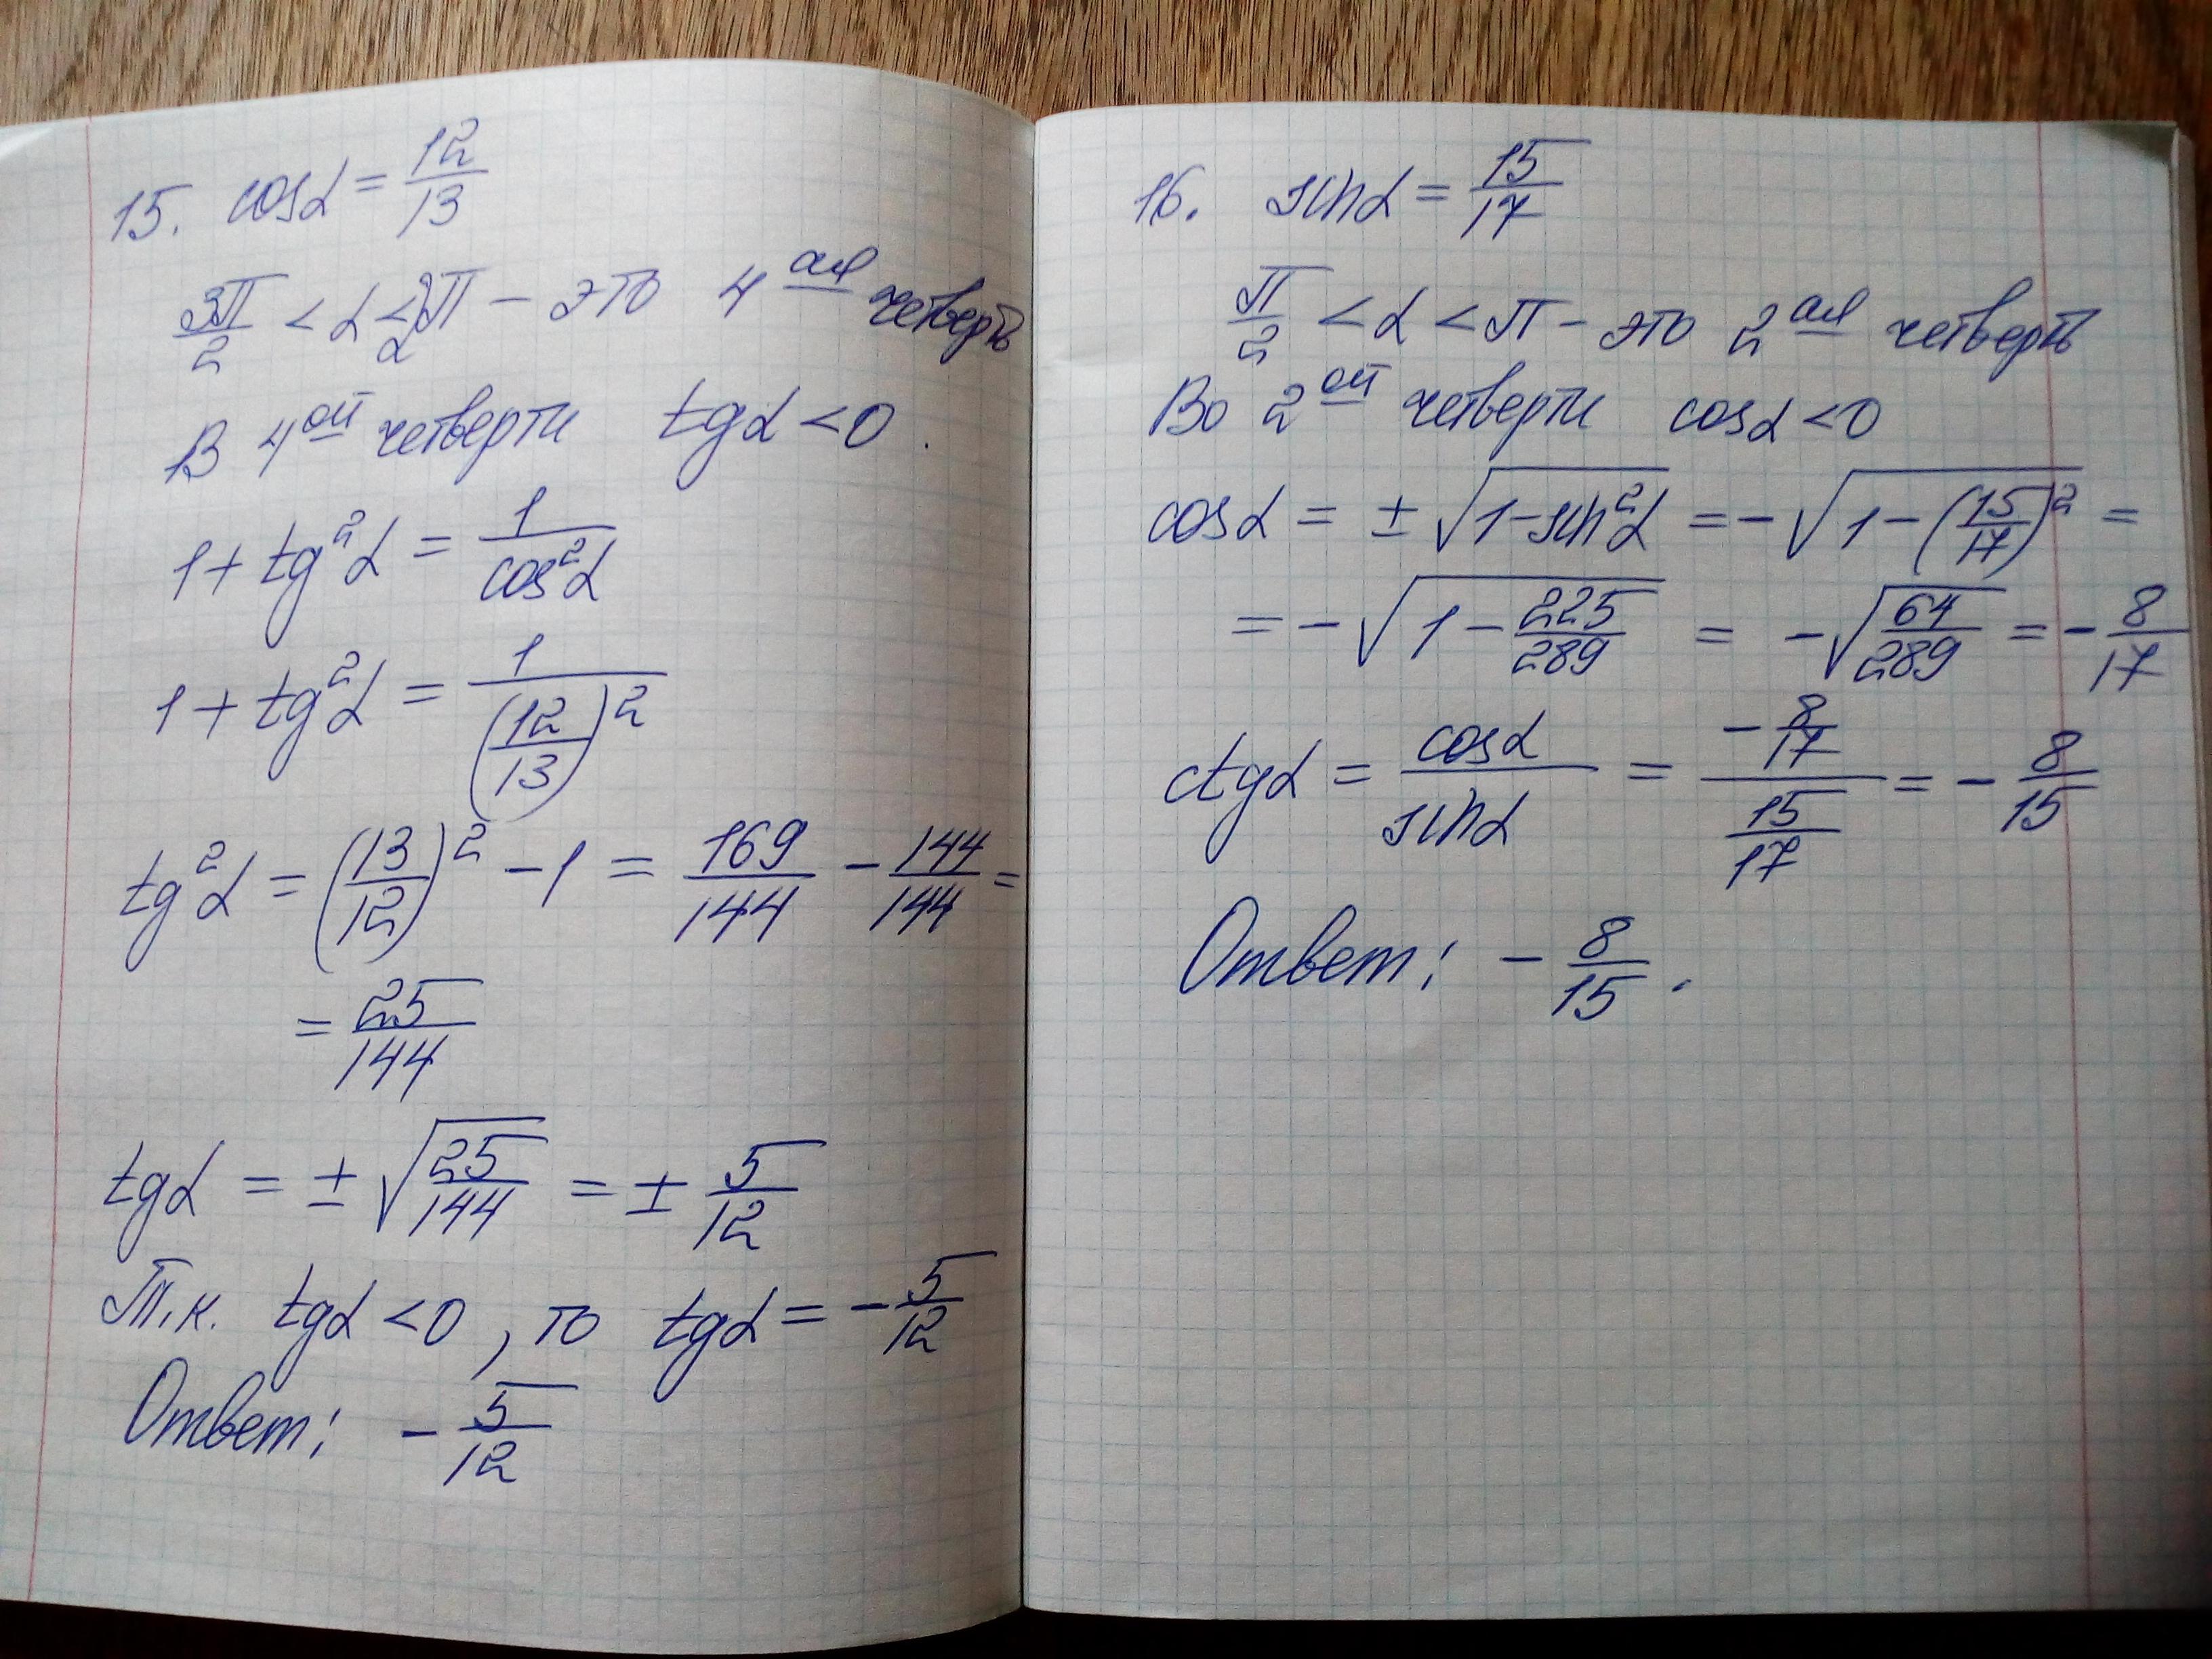 15. cosα = 12/13
3π/2 < α < 2π – это 4ая четверть
В 4ой четверти tgα < 0.
1 + tg²α = 1/cos²α
1 + tg²α = 1/(12/13)²
tg²α = (13/12)² – 1 = 169/144 – 144/144 =
= 25/144
tgα = ± √(25/144) = ± 5/12
Т.к. tgα < 0, то tgα = – 5/12
Ответ: – 5/12
16. sinα = 15/17
π/2 < α < π – это 2ая четверть
Во 2ой четверти cosα < 0
cosα = ± √(1 – sin²α) = – √(1 – (15/17)²) =
= – √(1 – 225/289) = – √(64/289) = – 8/17
ctgα = cosα/sinα = (– 8/17)/(15/17) = – 8/15
Ответ: – 8/15.